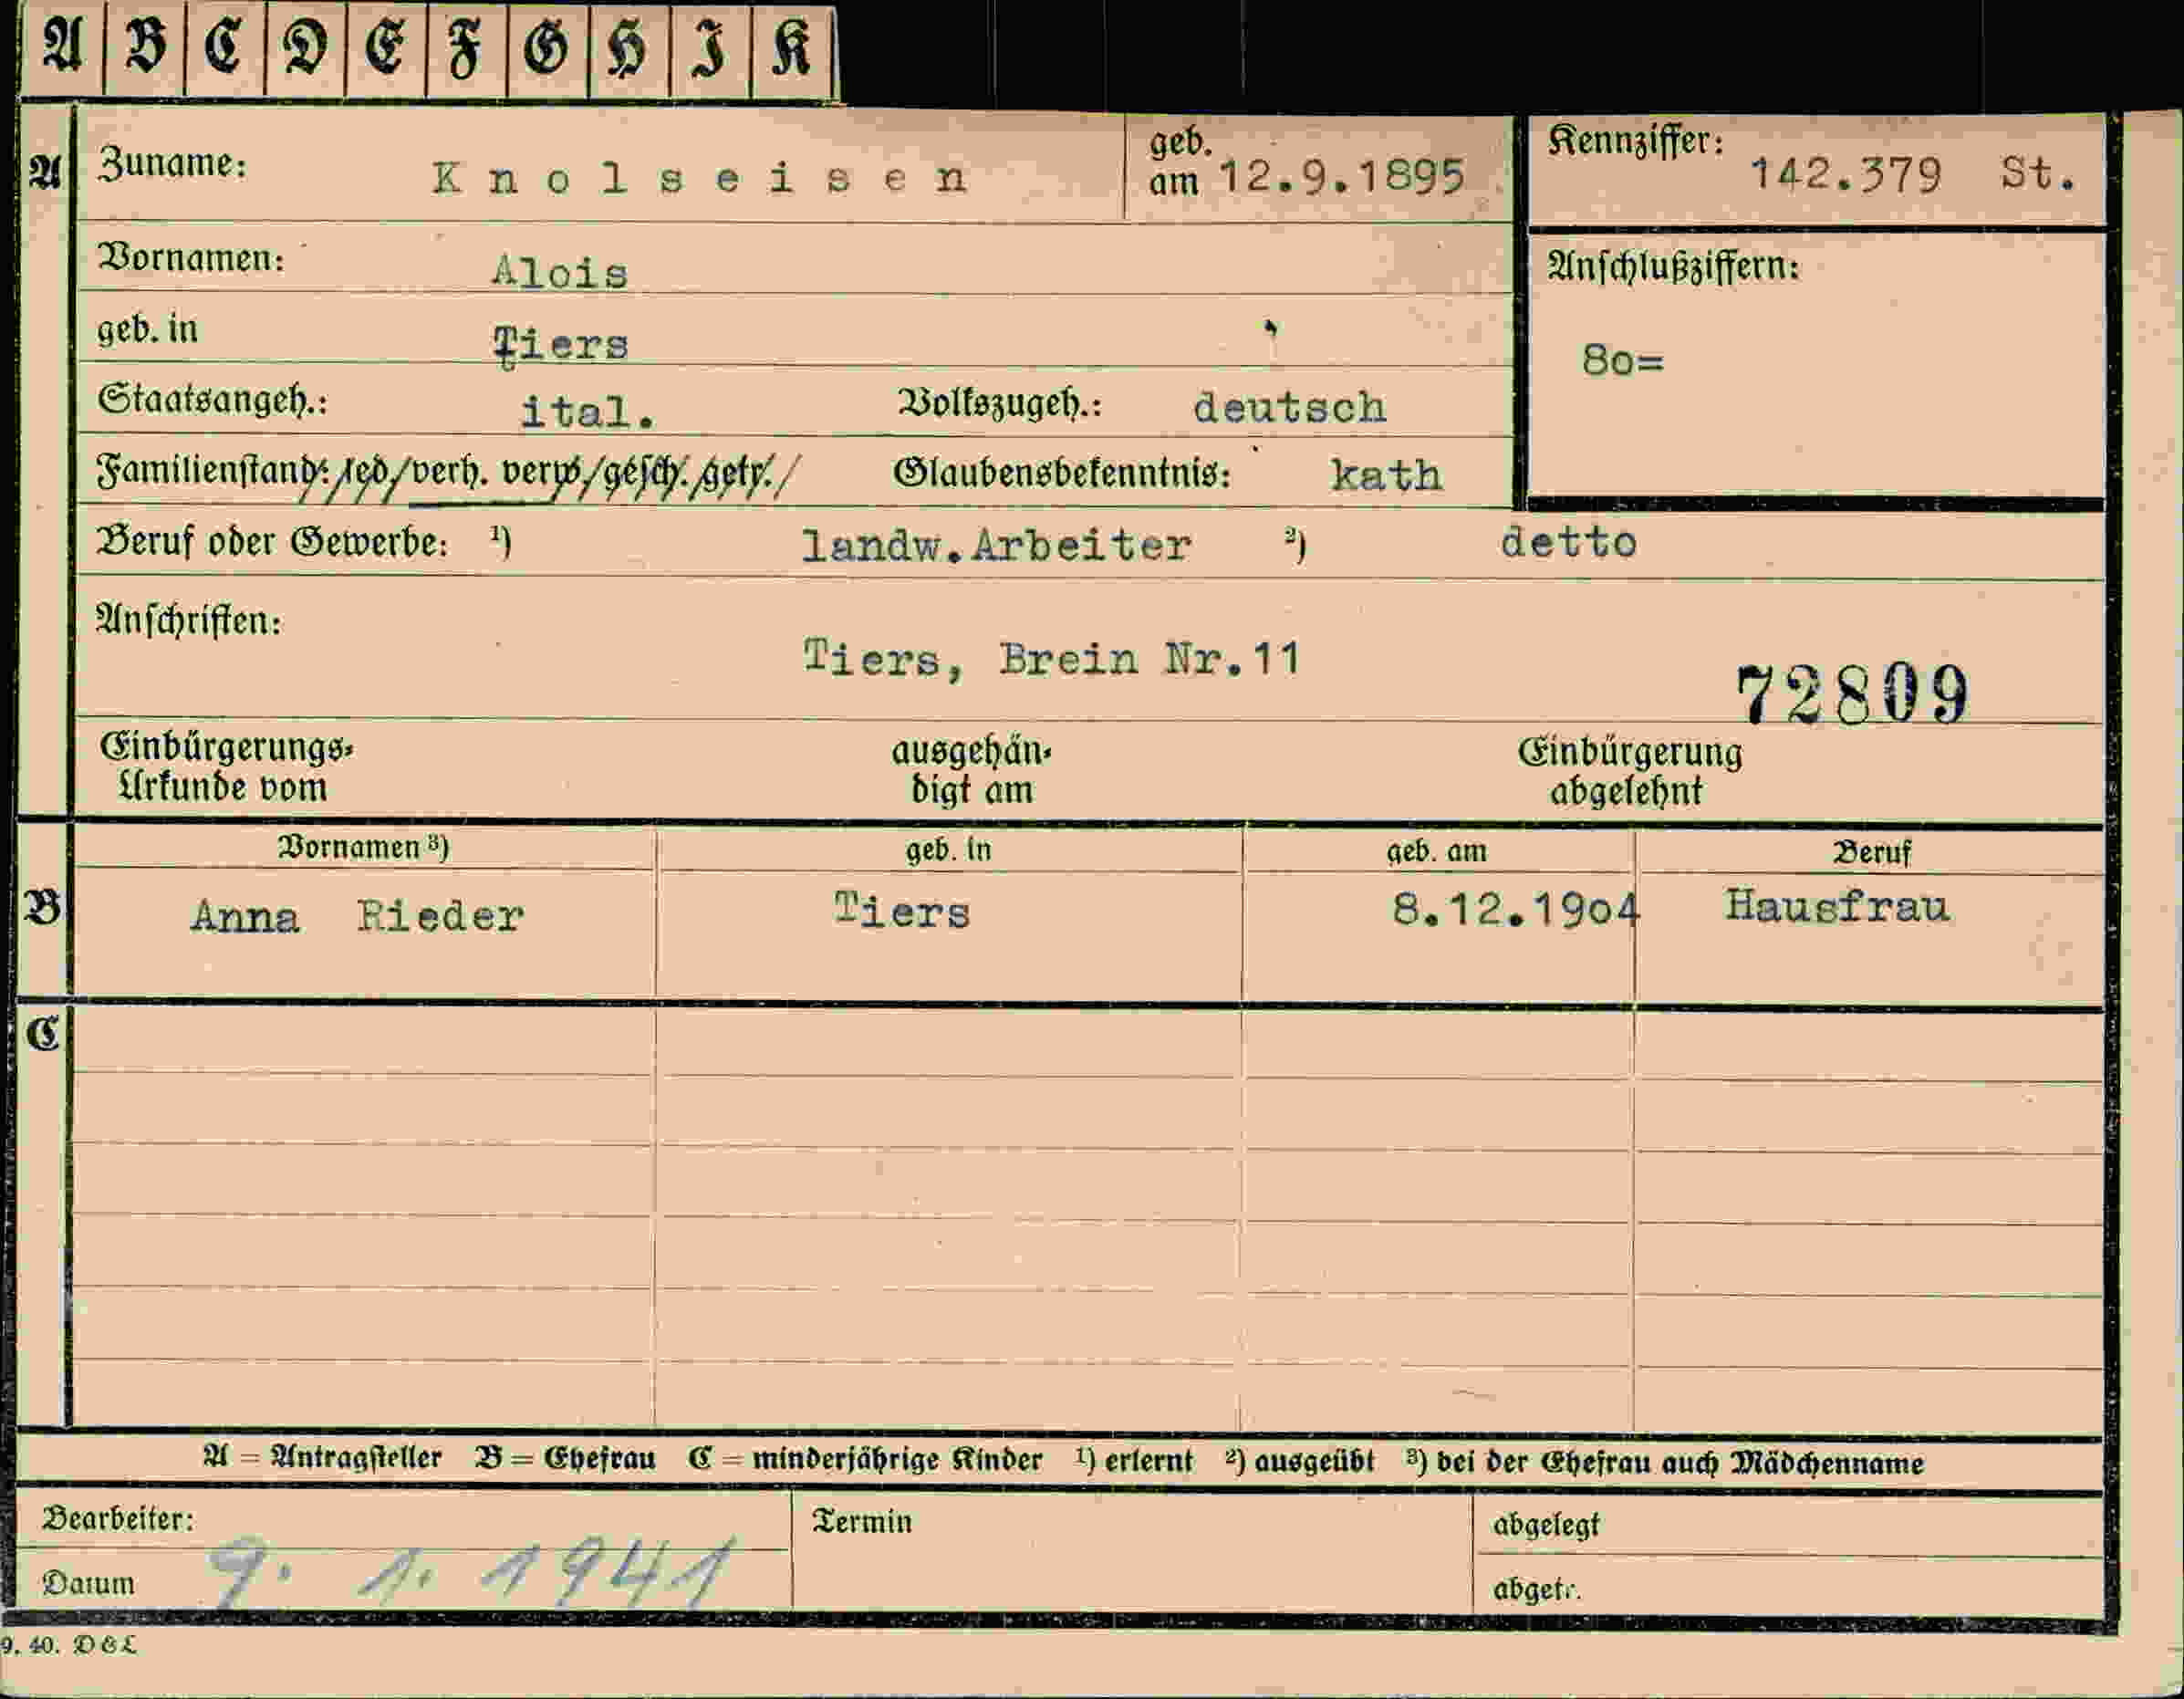 A B C D E F G H I K
A Zuname: Knolseisen geb. am 12.9.1895 Kennziffer: 142.379 St.
Vornamen: Alois Anschlußziffern:
geb. in Tiers 80=
Staatsangeh.: ital. Volkszugeh.: deutsch
Familienstand: led/verh. verw/gesch./getr./ Glaubensbekenntnis: kath
Beruf oder Gewerbe: ¹) landw.Arbeiter ²) detto
Anschriften:
Tiers, Brein Nr.11
72809
Einbürgerungs- ausgehän- Einbürgerung
Urkunde vom digt am abgelehnt
Vornamen ³) geb. in geb. am Beruf
B Anna Rieder Tiers 8.12.1904 Hausfrau
C
A = Antragsteller B = Ehefrau C = minderjährige Kinder ¹) erlernt ²) ausgeübt ³) bei der Ehefrau auch Mädchenname
Bearbeiter: Termin abgelegt
Datum 9. 1. 1941 abgetr.
9. 40. D&L